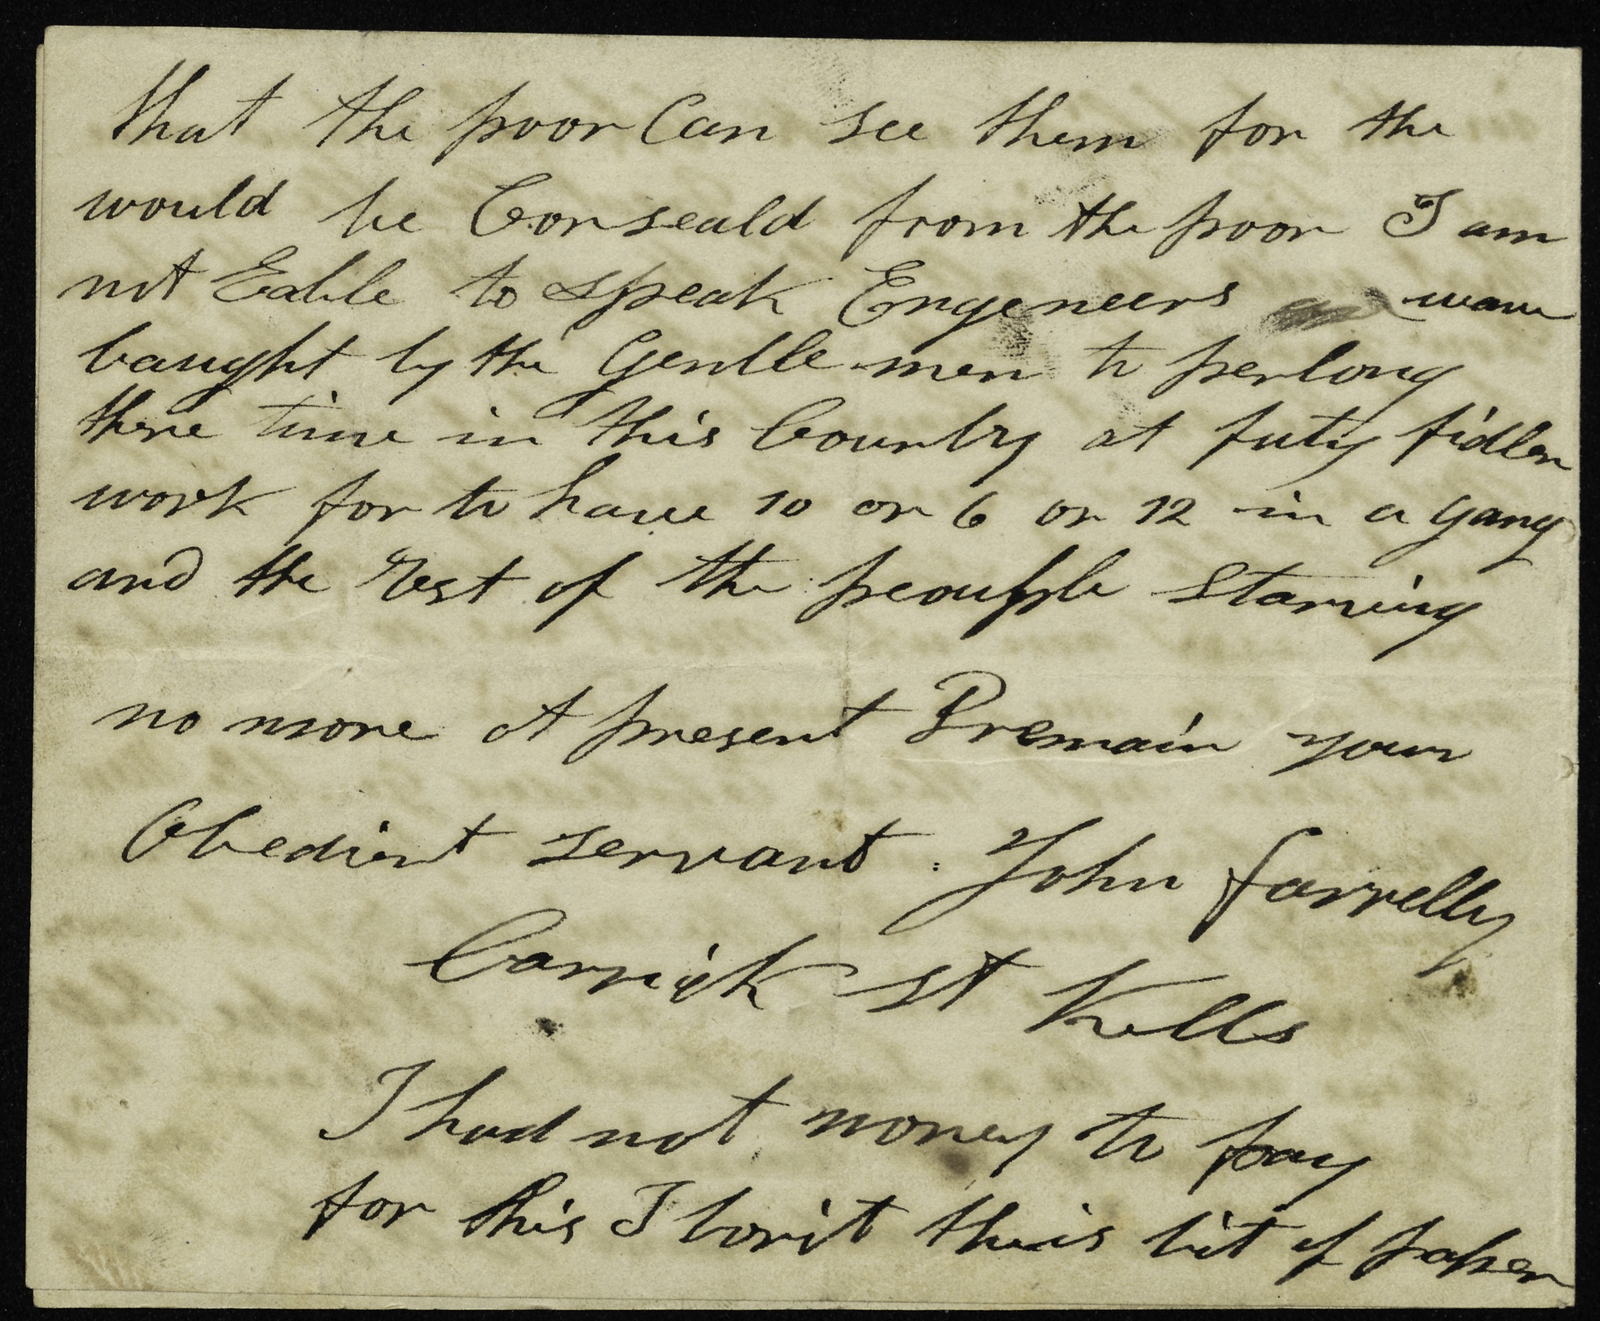 that the poor Can see them for the
would be Conseald from the poor I am
not Eable to speak Engeneers waw
baught by the Gentle men to perlong
there time in this Country at futy fidlen
work for to have 10 or 6 or 12 in a gang
and the rest of the peoupple starving
no more At present I remain your
Obedient servant . John farrelly
Carrick st Kells
I had not money to pay
for this I borit this bit of paper